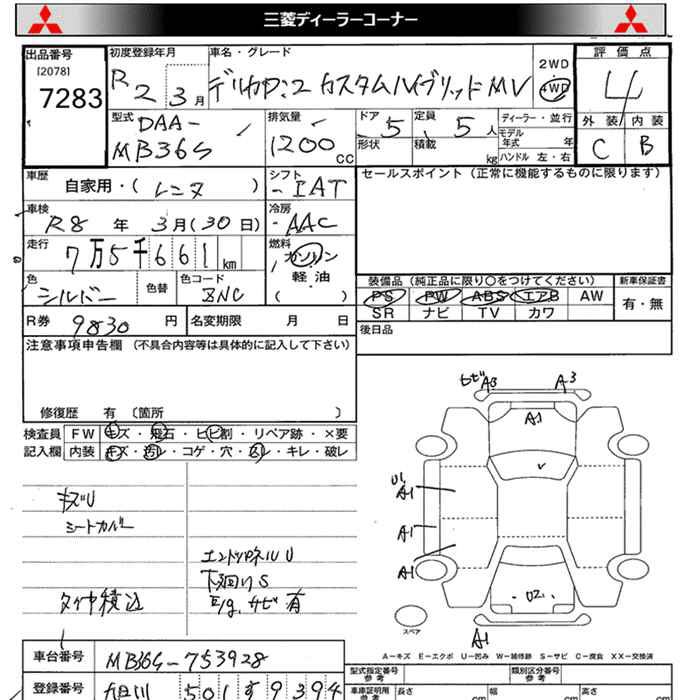 三菱ディーラーコーナー
出品番号 初度登録年月 車名・グレード 評価点
[2078]
7283 R2 3月 デリカD:2 カスタムハイブリッドMV 2WD 4WD 4
型式 DAA- 排気量 ドア 定員 ディーラー・並行 外装 内装
MB36S 1200cc 5 5人 モデル年式 年 C B
形状 積載 kg ハンドル 左・右
車歴 シフト セールスポイント(正常に機能するものに限ります)
自家用・( ) -IAT
車検 冷房
R8 年 3月(30日) -AAC
走行 燃料
7万5千661km ガソリン
軽・油
色 色替 色コード ( )
シルバー ZNC
装備品(純正品に限り○をつけてください) 新車保証書
PS PW ABS エアB AW 有・無
SR ナビ TV カワ
R券 9830 円 名変期限 月 日 後日品
注意事項申告欄(不具合内容等は具体的に記入して下さい)
修復歴 有〔箇所 〕
検査員 FW キズ・飛石・ヒビ割・リペア跡・×要
記入欄 内装 キズ・汚レ・コゲ・穴・スレ・キレ・破レ
キズU
シートカバー
エンドパネルU
下廻りS
タイヤ積込 E/g,サビ有
A3 A3
A1
U1
A1
A1
A1
U2
スペア
A1
A－キズ E－エクボ U－凹み W－補修跡 S－サビ C－腐食 XX－交換済
車台番号 MB36S-753928
型式指定番号 参考 類別区分番号 参考
登録番号 旭川 501 す 9394
車庫証明用 参考 長さ cm 幅 cm 高さ cm